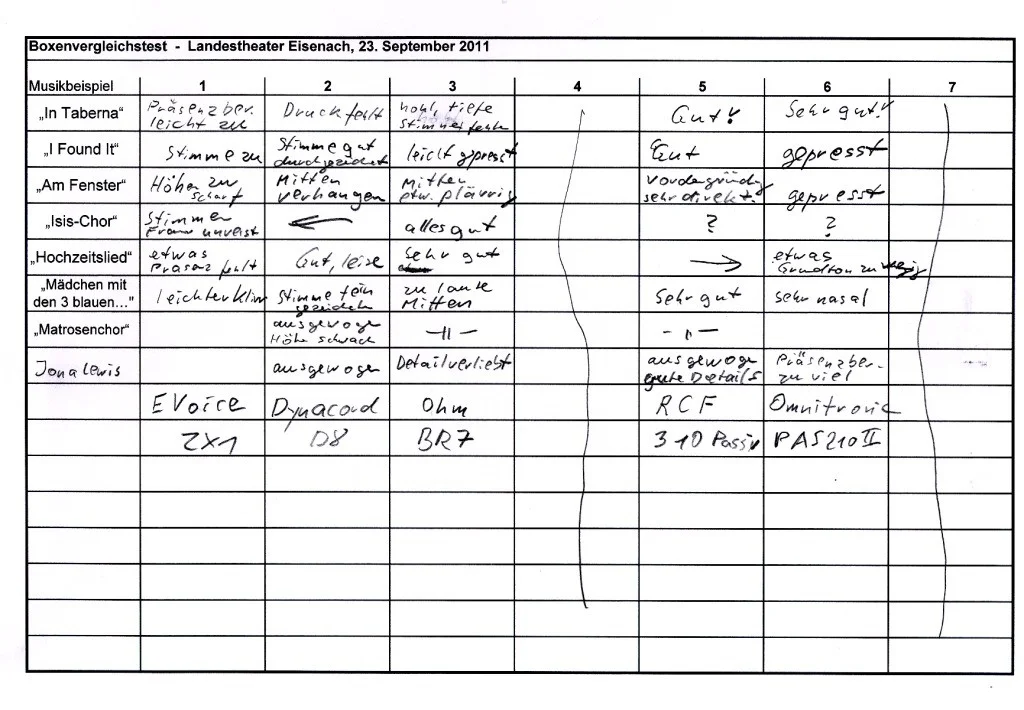 Boxenvergleichstest - Landestheater Eisenach, 23. September 2011
Musikbeispiel 1 2 3 4 5 6 7
„In Taberna“ Präsenzber. leicht zu Druck fehlt hohl, tiefe Stimmen fehlt Gut! Sehr gut!
„I Found It“ Stimme zu Stimme gut durchgezeichnet leicht gepresst Gut gepresst
„Am Fenster“ Höhen zu scharf Mitten verhangen Mitten etw. plärrig vordergründig sehr direkt. gepresst
„Isis-Chor“ Stimmen ← alles gut ? ?
„Hochzeitslied“ etwas Präsenz fehlt Gut, leise Sehr gut → etwas Grundton zu wenig
„Mädchen mit
den 3 blauen...“ leichter Stimme fein gezeichnet zu laute Mitten Sehr gut sehr nasal
„Matrosenchor“ ausgewoge Höhe schwach -"- -"-
Jona Lewis ausgewogen Detailverliebt ausgewoge gute Details Präsenzber. zu viel
EVoice Dynacord Ohm RCF Omnitronic
ZX1 D8 BR7 310 Passiv PAS210 II